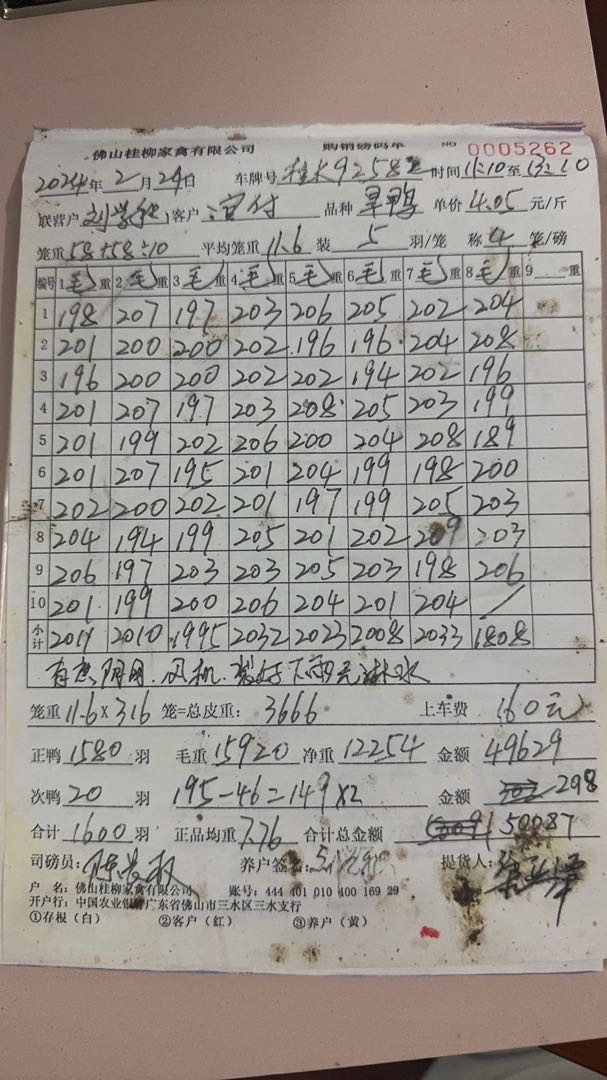 佛山桂柳家禽有限公司 购销磅码单 NO 0005262
2024年2月24日 车牌号 桂K92582 时间 11:10至13:10
联营户 客户 品种 旱鸭 单价 4.05 元/斤
笼重 58+58÷10 平均笼重 11.6 装 5 羽/笼 称 4 笼/磅
编号 1毛重 2毛重 3毛重 4毛重 5毛重 6毛重 7毛重 8毛重 9 重
1 198 207 197 203 206 205 202 204
2 201 200 200 202 196 196 204 208
3 196 200 200 202 202 194 202 196
4 201 207 197 203 208 205 203 199
5 201 199 202 206 200 204 208 189
6 201 207 195 201 204 199 198 200
7 202 200 202 201 197 199 205 203
8 204 194 199 205 201 202 209 203
9 206 197 203 203 205 203 198 206
10 201 199 200 206 204 201 204 /
小计 2011 2010 1995 2032 2023 2008 2033 1808
风机 淋水
笼重 11.6 X 316 笼=总皮重: 3666 上车费 160元
正鸭 1580 羽 毛重 15920 净重 12254 金额 49629
次鸭 20 羽 195-46=149×2 金额 298
合计 1600 羽 正品均重 7.76 合计总金额 50087
司磅员: 养户签名: 提货人:
户 名: 佛山桂柳家禽有限公司 账号: 444 401 010 400 169 29
开户行: 中国农业银行广东省佛山市三水区三水支行
①存根(白) ②客户(红) ③养户(黄)